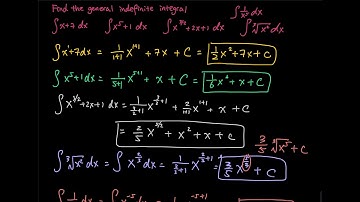 Find the general indefinite integral
∫ 1/x⁵ dx
∫ x+7 dx ∫ x⁵+1 dx ∫ x^(3/2)+2x+1 dx ∫ ∛x² dx
∫ x¹+7 dx = 1/(1+1) x^(1+1) + 7x + C = 1/2 x² + 7x + C
∫ x⁵+1 dx = 1/(5+1) x^(5+1) + x + C = 1/6 x⁶ + x + C
∫ x^(3/2)+2x+1 dx = 1/(3/2+1) x^(3/2+1) + 2/(1+1) x^(1+1) + x + C
= 2/5 x^(5/2) + x² + x + C
3/5 ∛x⁵ + C
∫ ∛x² dx = ∫ x^(2/3) dx = 1/(2/3+1) x^(2/3+1) = 3/5 x^(5/3) + C